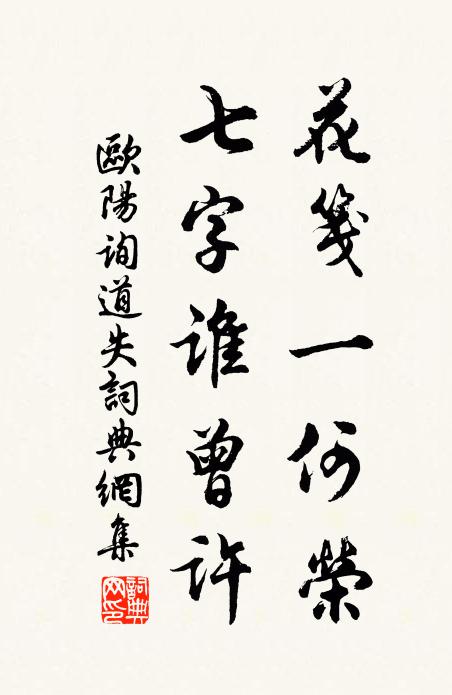 花箋一何榮
七字誰曾許
歐陽詢道失詞典網集
詞典网印